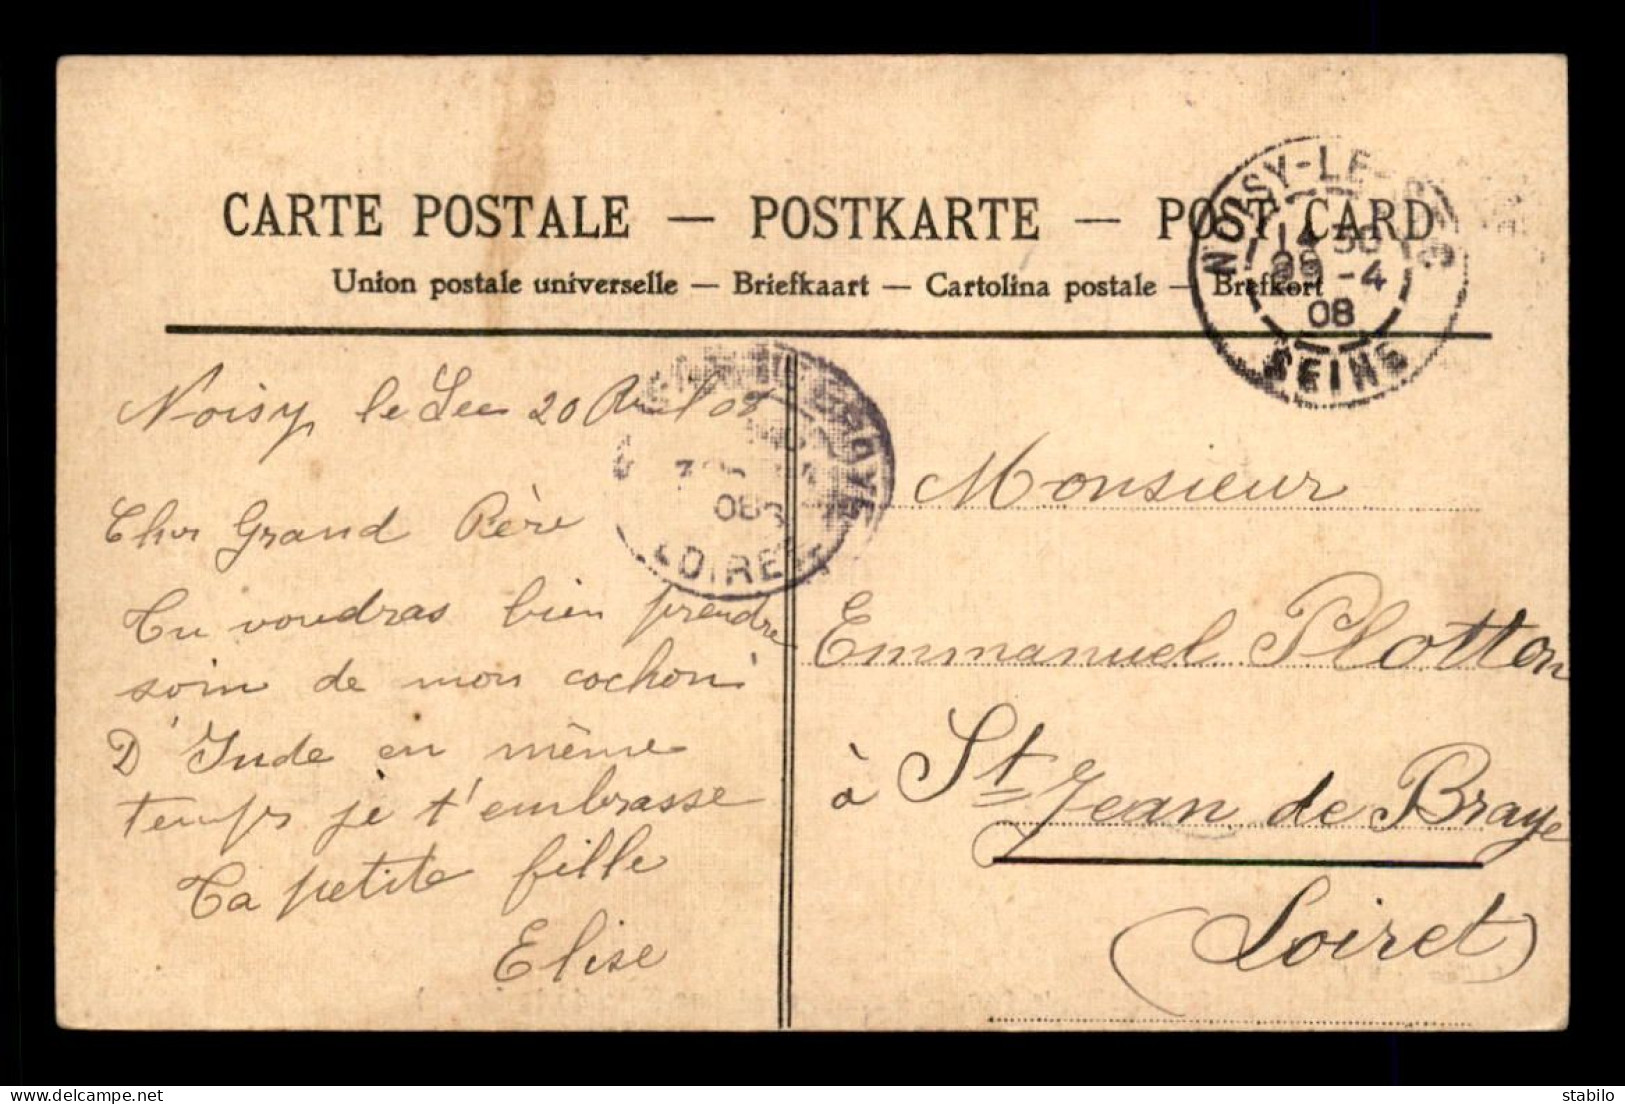 CARTE POSTALE — POSTKARTE — POST CARD
Union postale universelle — Briefkaart — Cartolina postale — Brefkort
NOISY-LE-SEC
14 30
29 -4
08
SEINE
LOIRET
Noisy le Sec 20 Avril 08
Cher Grand Père
Tu voudras bien prendre
soin de mon cochon
D'Inde en même
temps je t'embrasse
Ta petite fille
Elise
Monsieur
Emmanuel Plotton
à St Jean de Braye
(Loiret)
stabilo